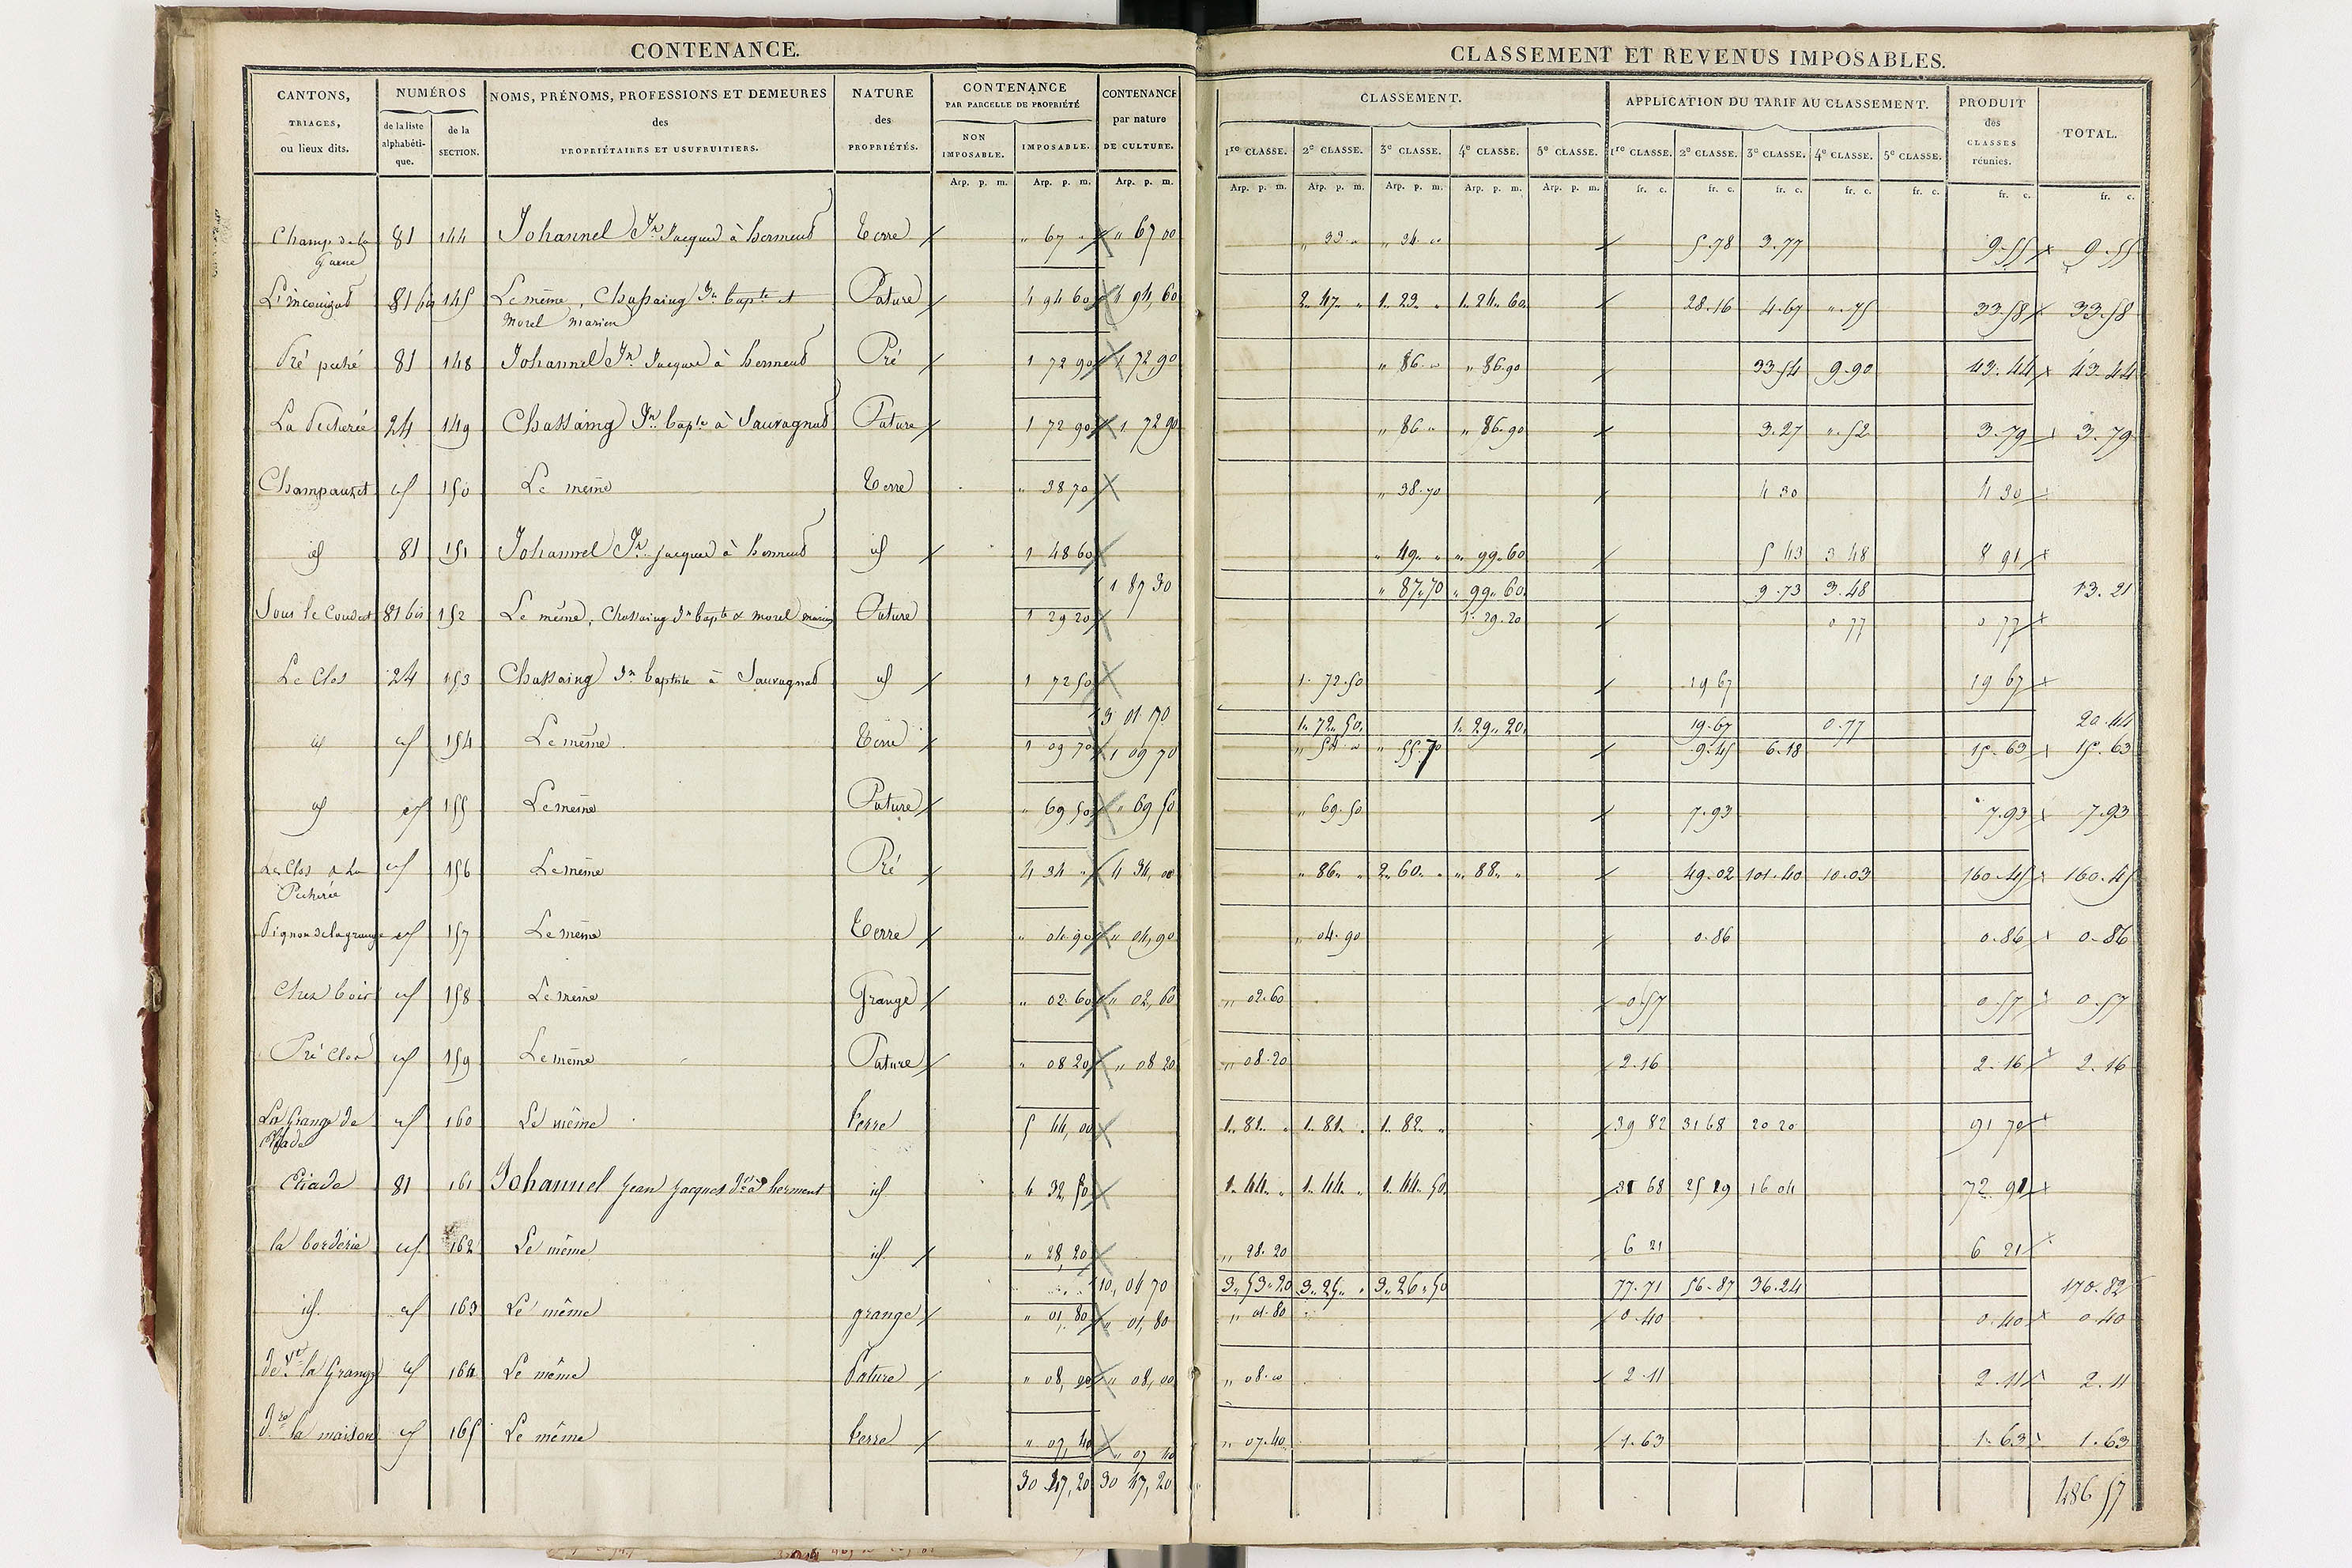 CONTENANCE.
CLASSEMENT ET REVENUS IMPOSABLES.
CANTONS, TRIAGES, ou lieux dits.
NUMÉROS
de la liste alphabétique.
de la SECTION.
NOMS, PRÉNOMS, PROFESSIONS ET DEMEURES des PROPRIÉTAIRES ET USUFRUITIERS.
NATURE des PROPRIÉTÉS.
CONTENANCE PAR PARCELLE DE PROPRIÉTÉ
NON IMPOSABLE.
IMPOSABLE.
CONTENANCE par nature DE CULTURE.
CLASSEMENT.
1re CLASSE. 2e CLASSE. 3e CLASSE. 4e CLASSE. 5e CLASSE.
APPLICATION DU TARIF AU CLASSEMENT.
1re CLASSE. 2e CLASSE. 3e CLASSE. 4e CLASSE. 5e CLASSE.
PRODUIT des CLASSES réunies.
TOTAL.
Arp. p. m. Arp. p. m. Arp. p. m. Arp. p. m. Arp. p. m. Arp. p. m. Arp. p. m. Arp. p. m. fr. c. fr. c. fr. c. fr. c. fr. c. fr. c. fr. c.
Champ de la 81 144 Johannel Jn Jacques à herment Terre " 67 " " 67 00 " 33 " " 34 " 5.78 3.77 9.55 9.55
81 bis 145 Le même, Chassaing Jn bapte et Pature 4 94 60 4 94,60 2. 47 " 1. 23 " 1. 24. 60 28.16 4.67 ".75 33.58 33.58
Morel marien
Pré 81 148 Johannel Jn Jacques à herment Pré 1 72 90 1 72,90 " 86 " " 86.90 33 54 9.90 43.44 43.44
La Pecherie 24 149 Chassaing Jn bapte à Sauvagnat Pature 1 72 90 1 72 90 " 86 " " 86.90 3.27 ".52 3.79 3.79
Champauzet id 150 Le même Terre " 38 70 " 38.70 4 30 4 30
id 81 151 Johannel Jn Jacques à herment id 1 48 60 " 49 " " 99.60 5 43 3 48 8 91
1 87 30 " 87.70 " 99.60 9.73 3.48 13.21
Sous le Coudert 81 bis 152 Le même, Chassaing Jn bapte & morel marien Pature 1 29 20 1. 29.20 0 77 0 77
Le Clos 24 153 Chassaing Jn baptiste à Sauvagnat id 1 72 50 1. 72.50 19 67 19 67
3 01 70 1. 72. 50 1. 29. 20 19.67 0.77 20.44
id id 154 Le même Terre 1 09 70 1 09 70 " 54 " " 55.70 9.45 6.18 15.63 15.63
id id 155 Le même Pature " 69 50 " 69 50 " 69.50 7.93 7.93 7.93
Le Clos id 156 Le même Pré 4 34 " 4 34,00 " 86 " 2. 60 " " 88 " 49.02 101.40 10.03 160.45 160.45
Pecherie
Pignon de la grange id 157 Le même Terre " 04 90 " 04,90 " 04.90 0.86 0.86 0.86
Chez id 158 Le même Grange " 02 60 " 02,60 " 02.60 0.57 0.57 0.57
Pré Clos id 159 Le même Pature " 08 20 " 08 20 " 08.20 2.16 2.16 2.16
La Grange de id 160 Le même terre 5 44,00 1. 81 " 1. 81 " 1. 82 " 39 82 31 68 20 20 91 70
Eliade 81 161 Johannel Jean Jacques herment id 4 32,50 1. 44 " 1. 44 " 1. 44. 50 31 68 25 19 16 04 72 91
la borderie id 162 Le même id " 28,20 " 28.20 6 21 6 21
10,04 70 3. 53.20 3. 25 " 3. 26.50 77.71 56.87 36.24 170.82
id. id 163 Le même grange " 01,80 " 01,80 " 01.80 0.40 0.40 0.40
la Grange id 164 Le même Pature " 08,00 " 08,00 " 08.00 2.11 2.11 2.11
la maison id 165 Le même terre " 07,40 " 07 40 " 07.40 1.63 1.63 1.63
30 47,20 30 47,20 486 57